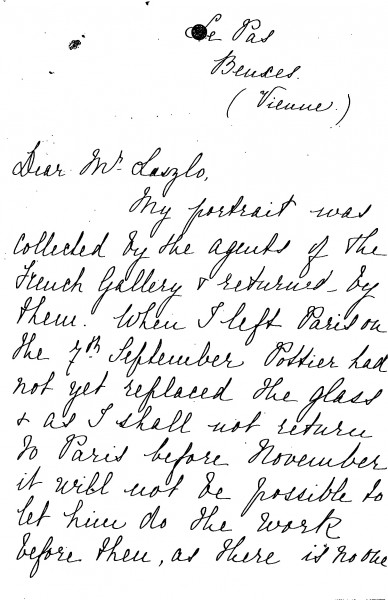 Le Pas
Beuxes.
(Vienne.)
Dear Mr Laszlo,
My portrait was
collected by the agents of the
French Gallery & returned by
them. When I left Paris on
the 7th September Pottier had
not yet replaced the glass
& as I shall not return
to Paris before November
it will not be possible to
let him do the work
before then, as there is no one